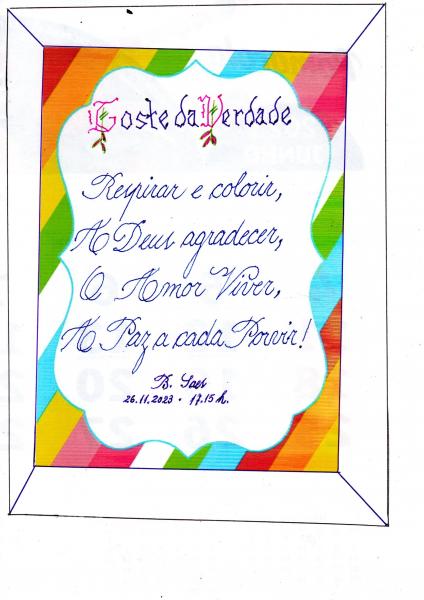 Goste da Verdade
Respirar e colorir,
A Deus agradecer,
O Amor Viver,
A Paz a cada Porvir!
26.11.2023 · 17.15 h.